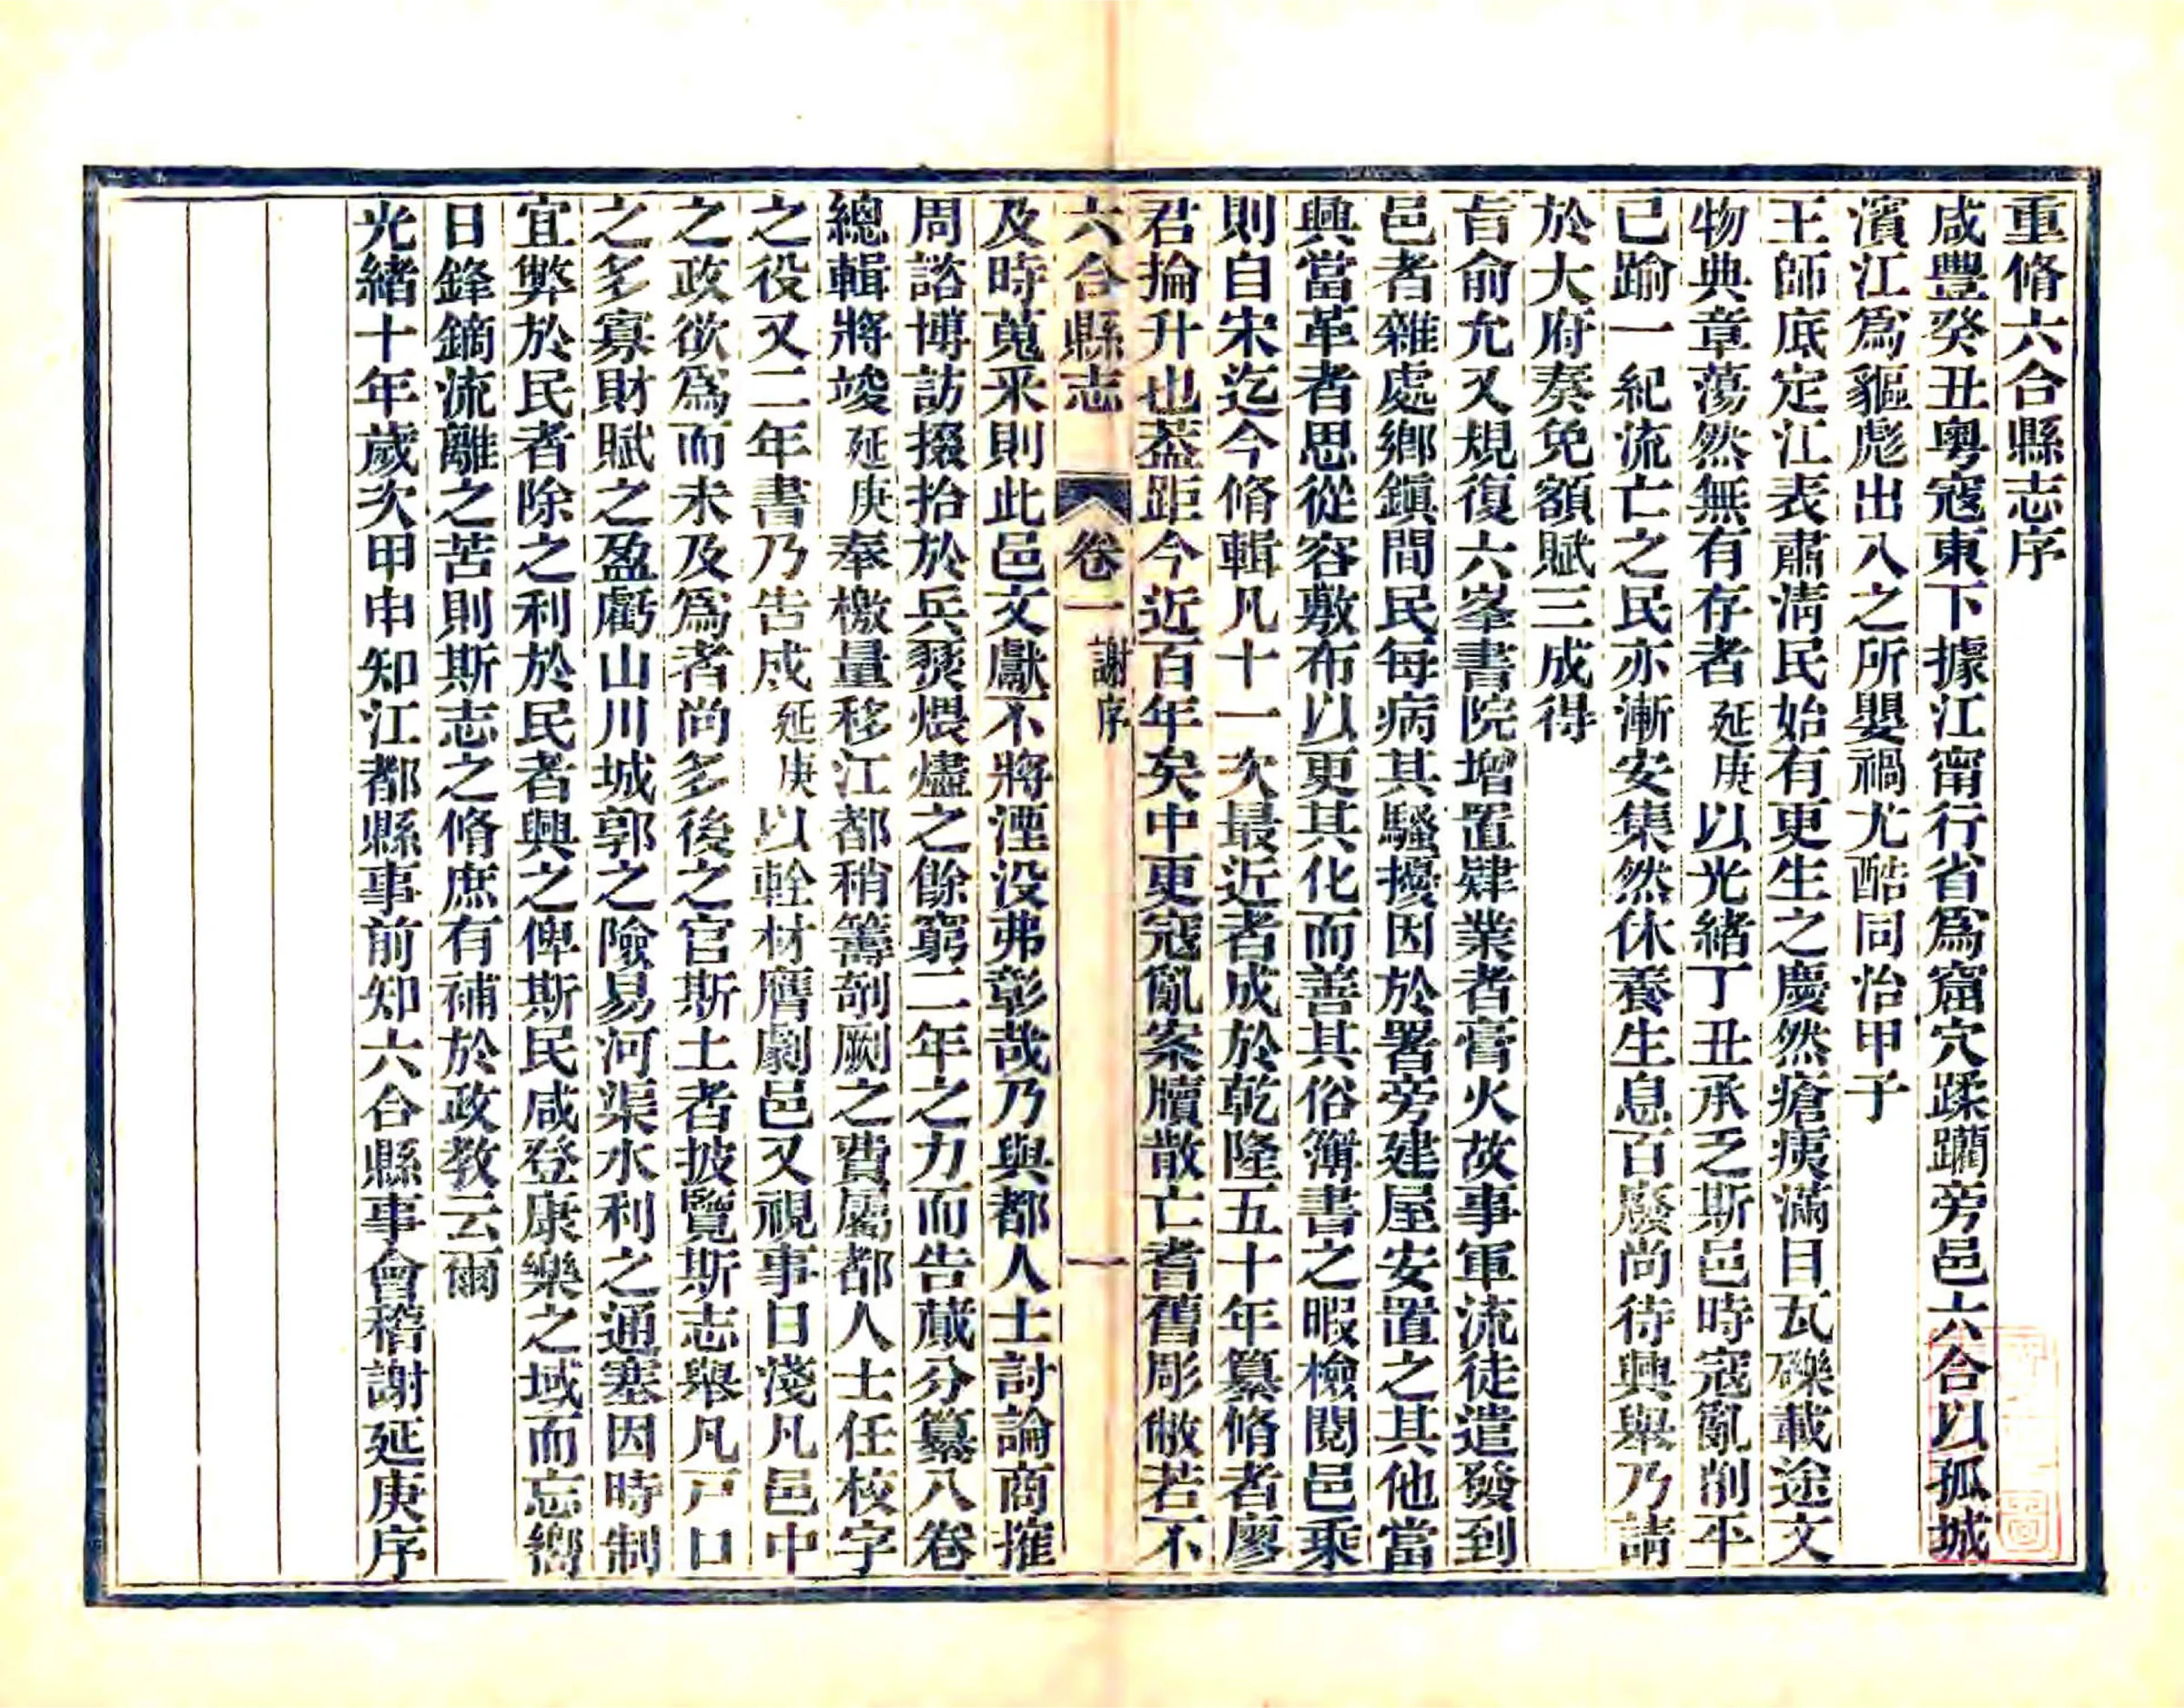 重脩六合縣志序
咸豐癸丑粵寇東下據江甯行省爲窟穴蹂躪旁邑六合以孤城
濱江爲貙彪出入之所嬰禍尤酷同治甲子
王師底定江表肅淸民始有更生之慶然瘡痍滿目瓦礫載途文
物典章蕩然無有存者延庚以光緒丁丑承乏斯邑時寇亂削平
已踰一紀流亡之民亦漸安集然休養生息百廢尚待興舉乃請
於大府奏免額賦三成得
旨俞允又規復六峯書院增置肄業者膏火故事軍流徒遣發到
邑者雜處鄉鎭間民每病其騷擾因於署旁建屋安置之其他當
興當革者思從容敷布以更其化而善其俗簿書之暇檢閱邑乘
則自宋迄今脩輯凡十一次最近者成於乾隆五十年纂脩者廖
君掄升也葢距今近百年矣中更寇亂案牘散亡耆舊彫敝若不
六合縣志 卷一 謝序 一
及時蒐采則此邑文獻不將湮没弗彰哉乃與都人士討論商搉
周諮博訪掇拾於兵燹煨燼之餘窮二年之力而告蕆分纂八卷
總輯將竣延庚奉檄量移江都稍籌剞劂之費屬都人士任校字
之役又二年書乃告成延庚以輇材膺劇邑又視事日淺凡邑中
之政欲爲而未及爲者尚多後之官斯土者披覽斯志舉凡戸口
之多寡財賦之盈虧山川城郭之險易河渠水利之通塞因時制
宜弊於民者除之利於民者興之俾斯民咸登康樂之域而忘嚮
日鋒鏑流離之苦則斯志之脩庶有補於政教云爾
光緒十年歲次甲申知江都縣事前知六合縣事會稽謝延庚序